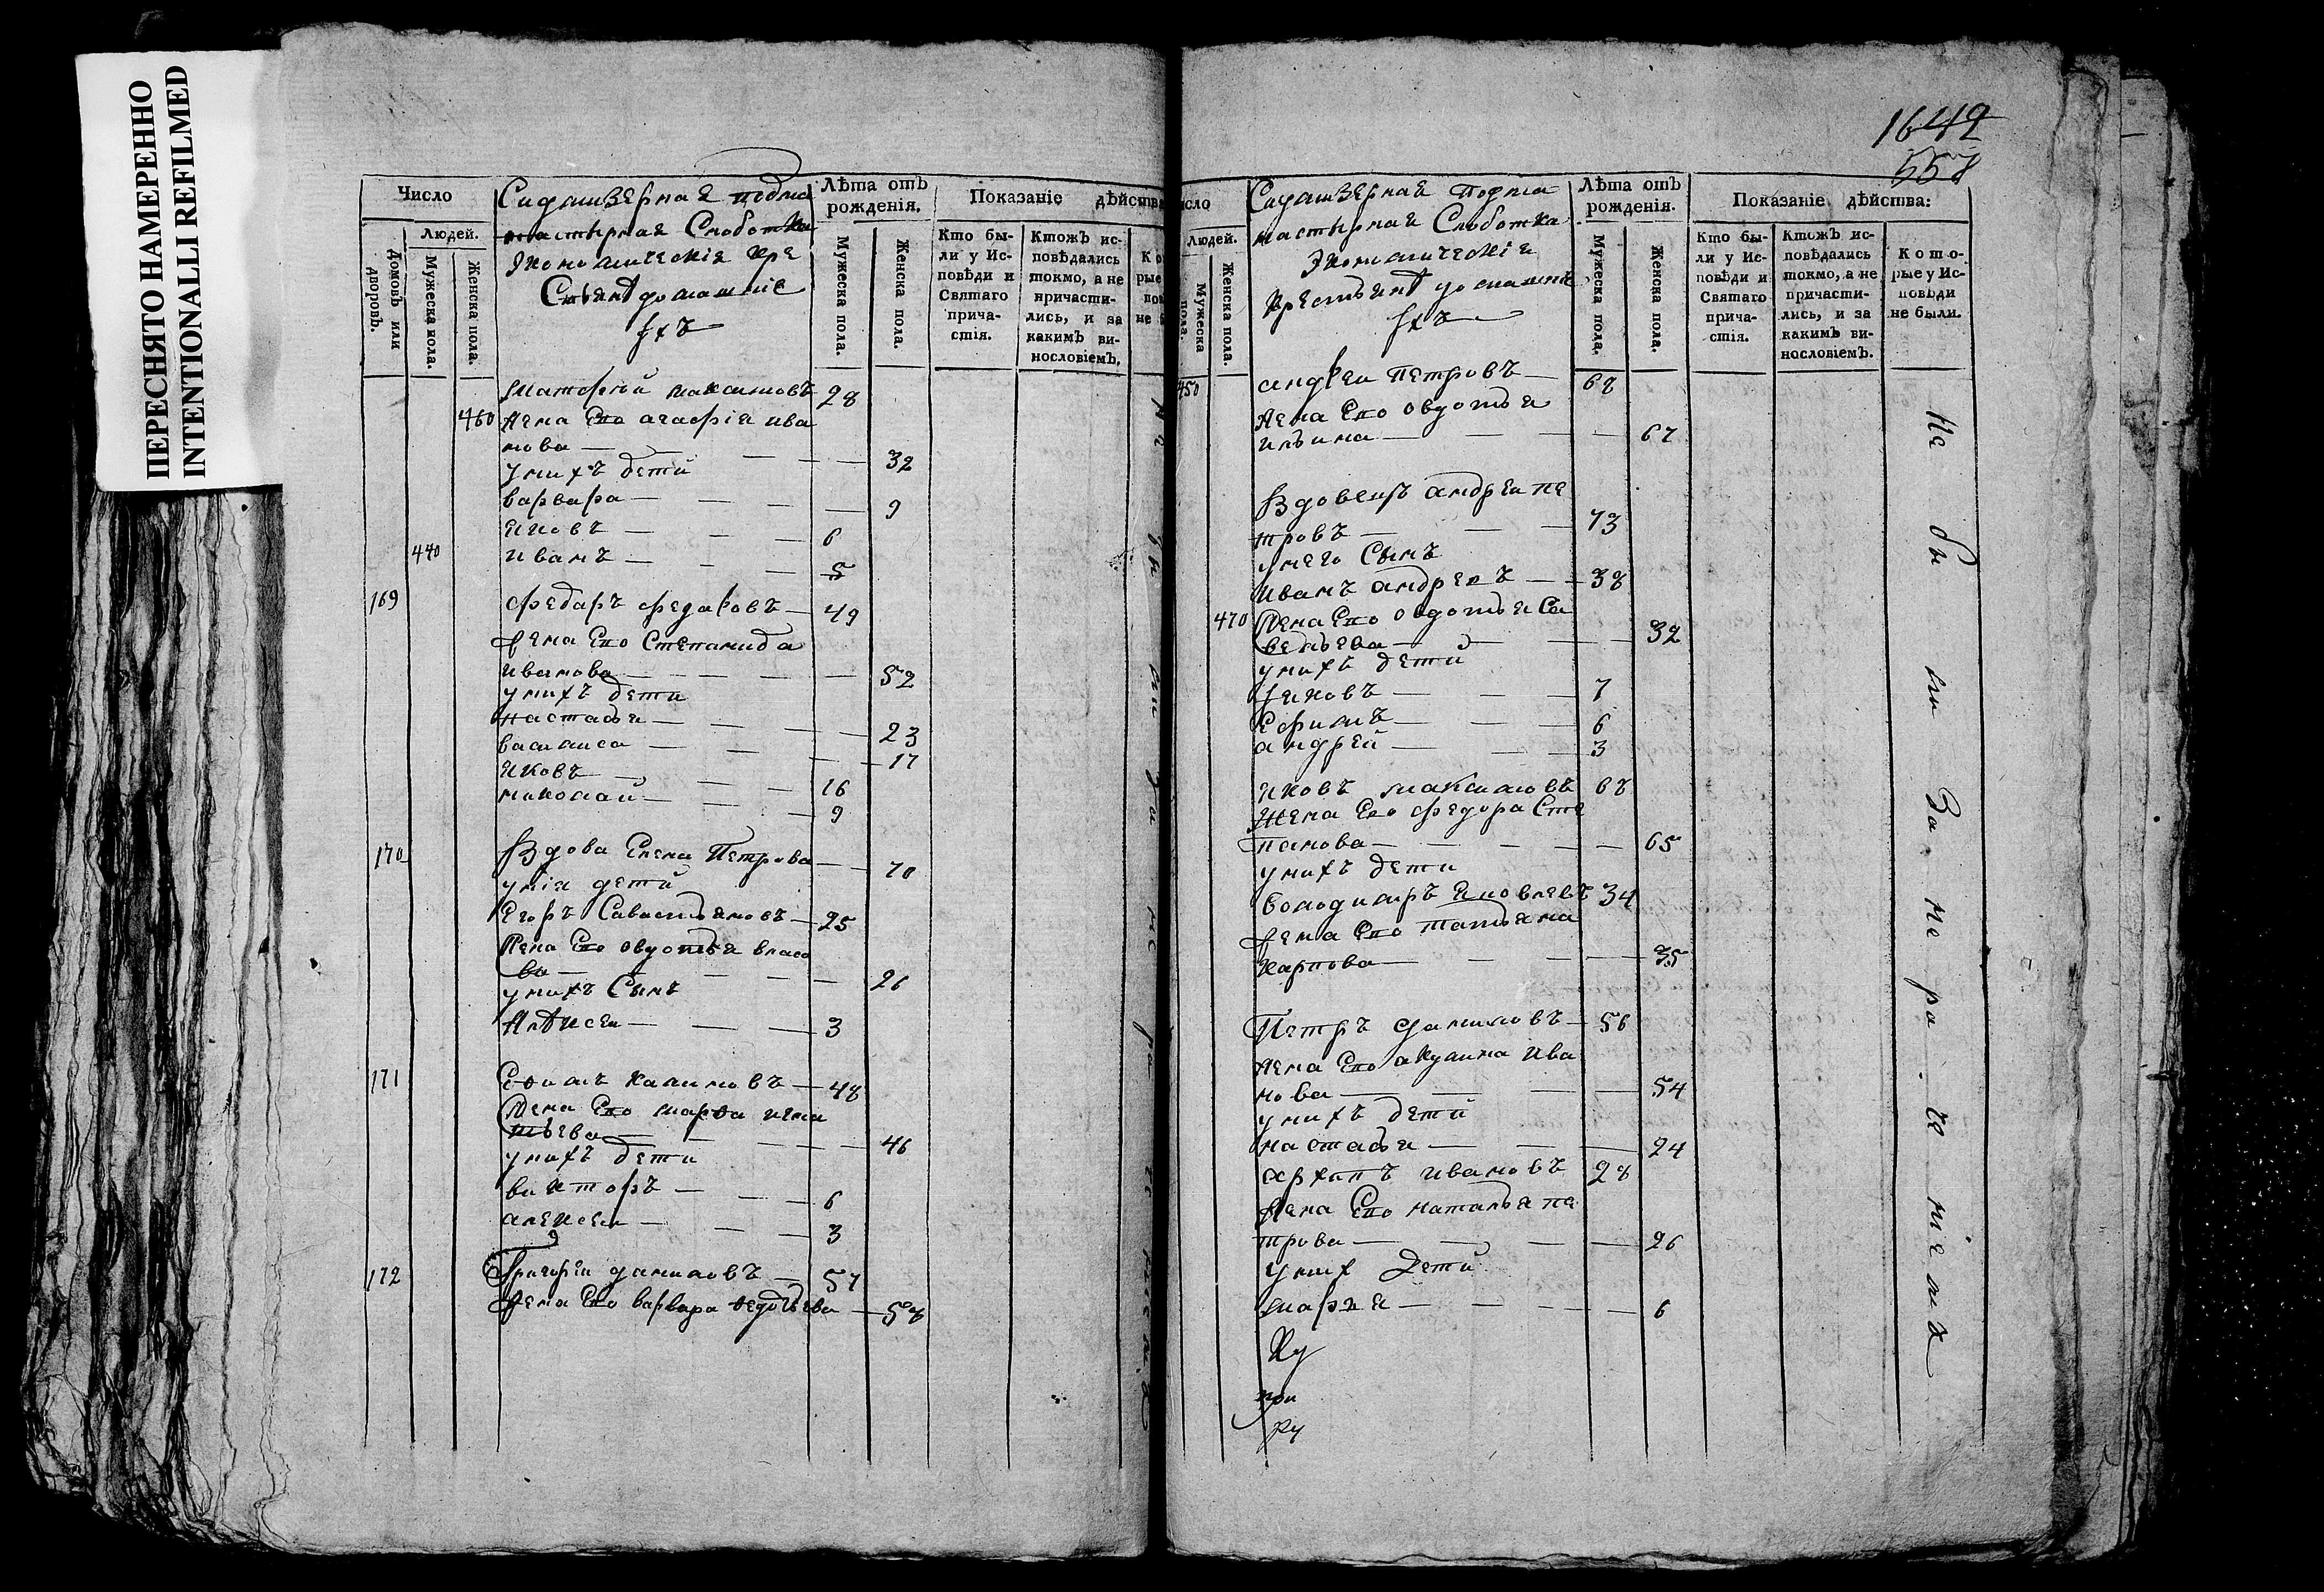 ПЕРЕСНЯТО НАМЕРЕННО
INTENTIONALLI REFILMED
Число
Людей.
Домовъ или дворовъ.
Мужеска пола.
Женска пола.
подмо
настырная Слободка
Экономическія кре
стьянѣ домашніе
ихъ
Лѣта отъ рожденія.
Мужеска пола.
Женска пола.
Показаніе дѣйства
Кто были у Исповѣди и Святаго причастія.
Ктожъ исповѣдались токмо, а не причастились, и за какимъ винословіемъ.
максимовъ 28
460 жена Его агафія ива
нова — 32
у нихъ дети
варвара — 9
яковъ — 6
440 иванъ — 5
169 федаръ федаровъ — 49
жена Его Степанида
иванова — 52
у нихъ дети
настасья — 23
василиса — 17
яковъ — 16
николай — 9
170 Вдова Елена Петрова — 70
у нія дети
Егоръ Савастьяновъ — 25
жена Его овдотья власо
ва — 26
у нихъ Сынъ
Алѣксеи — 3
171 Еѳимъ калиновъ — 48
жена Его марѳа игна
тьева — 46
у нихъ дети
викторъ — 6
алексеи — 3
172 Григореи даниловъ — 57
жена Его варвара — 58
Не бы ли за не ра де ніемъ
1649
557
исло
Людей.
Мужеска пола.
Женска пола.
подмо
настырная Слободка
Экономическія
крестьянѣ домашніе
ихъ
Лѣта отъ рожденія.
Мужеска пола.
Женска пола.
Показаніе дѣйства:
Кто были у Исповѣди и Святаго причастія.
Ктожъ исповѣдались токмо, а не причастились, и за какимъ винословіемъ.
Которые у Исповѣди не были.
450 андреи Петровъ — 68
жена Его овдотья
ильина — 67
Вдовецъ андреи пе
тровъ — 73
у него Сынъ
иванъ андреевъ — 38
470 жена Его овдотья Са
ве — 32
у нихъ дети
яковъ — 7
Ефимъ — 6
андрей — 3
яковъ максимовъ 68
жена Его федора Сте
панова — 65
у нихъ дети
володимиръ яковлевъ 34
жена Его татьяна
карпова — 35
Петръ даниловъ — 56
жена Его акулина ива
нова — 54
у нихъ дети
настасья — 24
архипъ ивановъ 28
жена Его наталья пе
трова — 26
у них дети
марья — 6
Ку
при
ру
Не бы ли за не ра де ніемъ